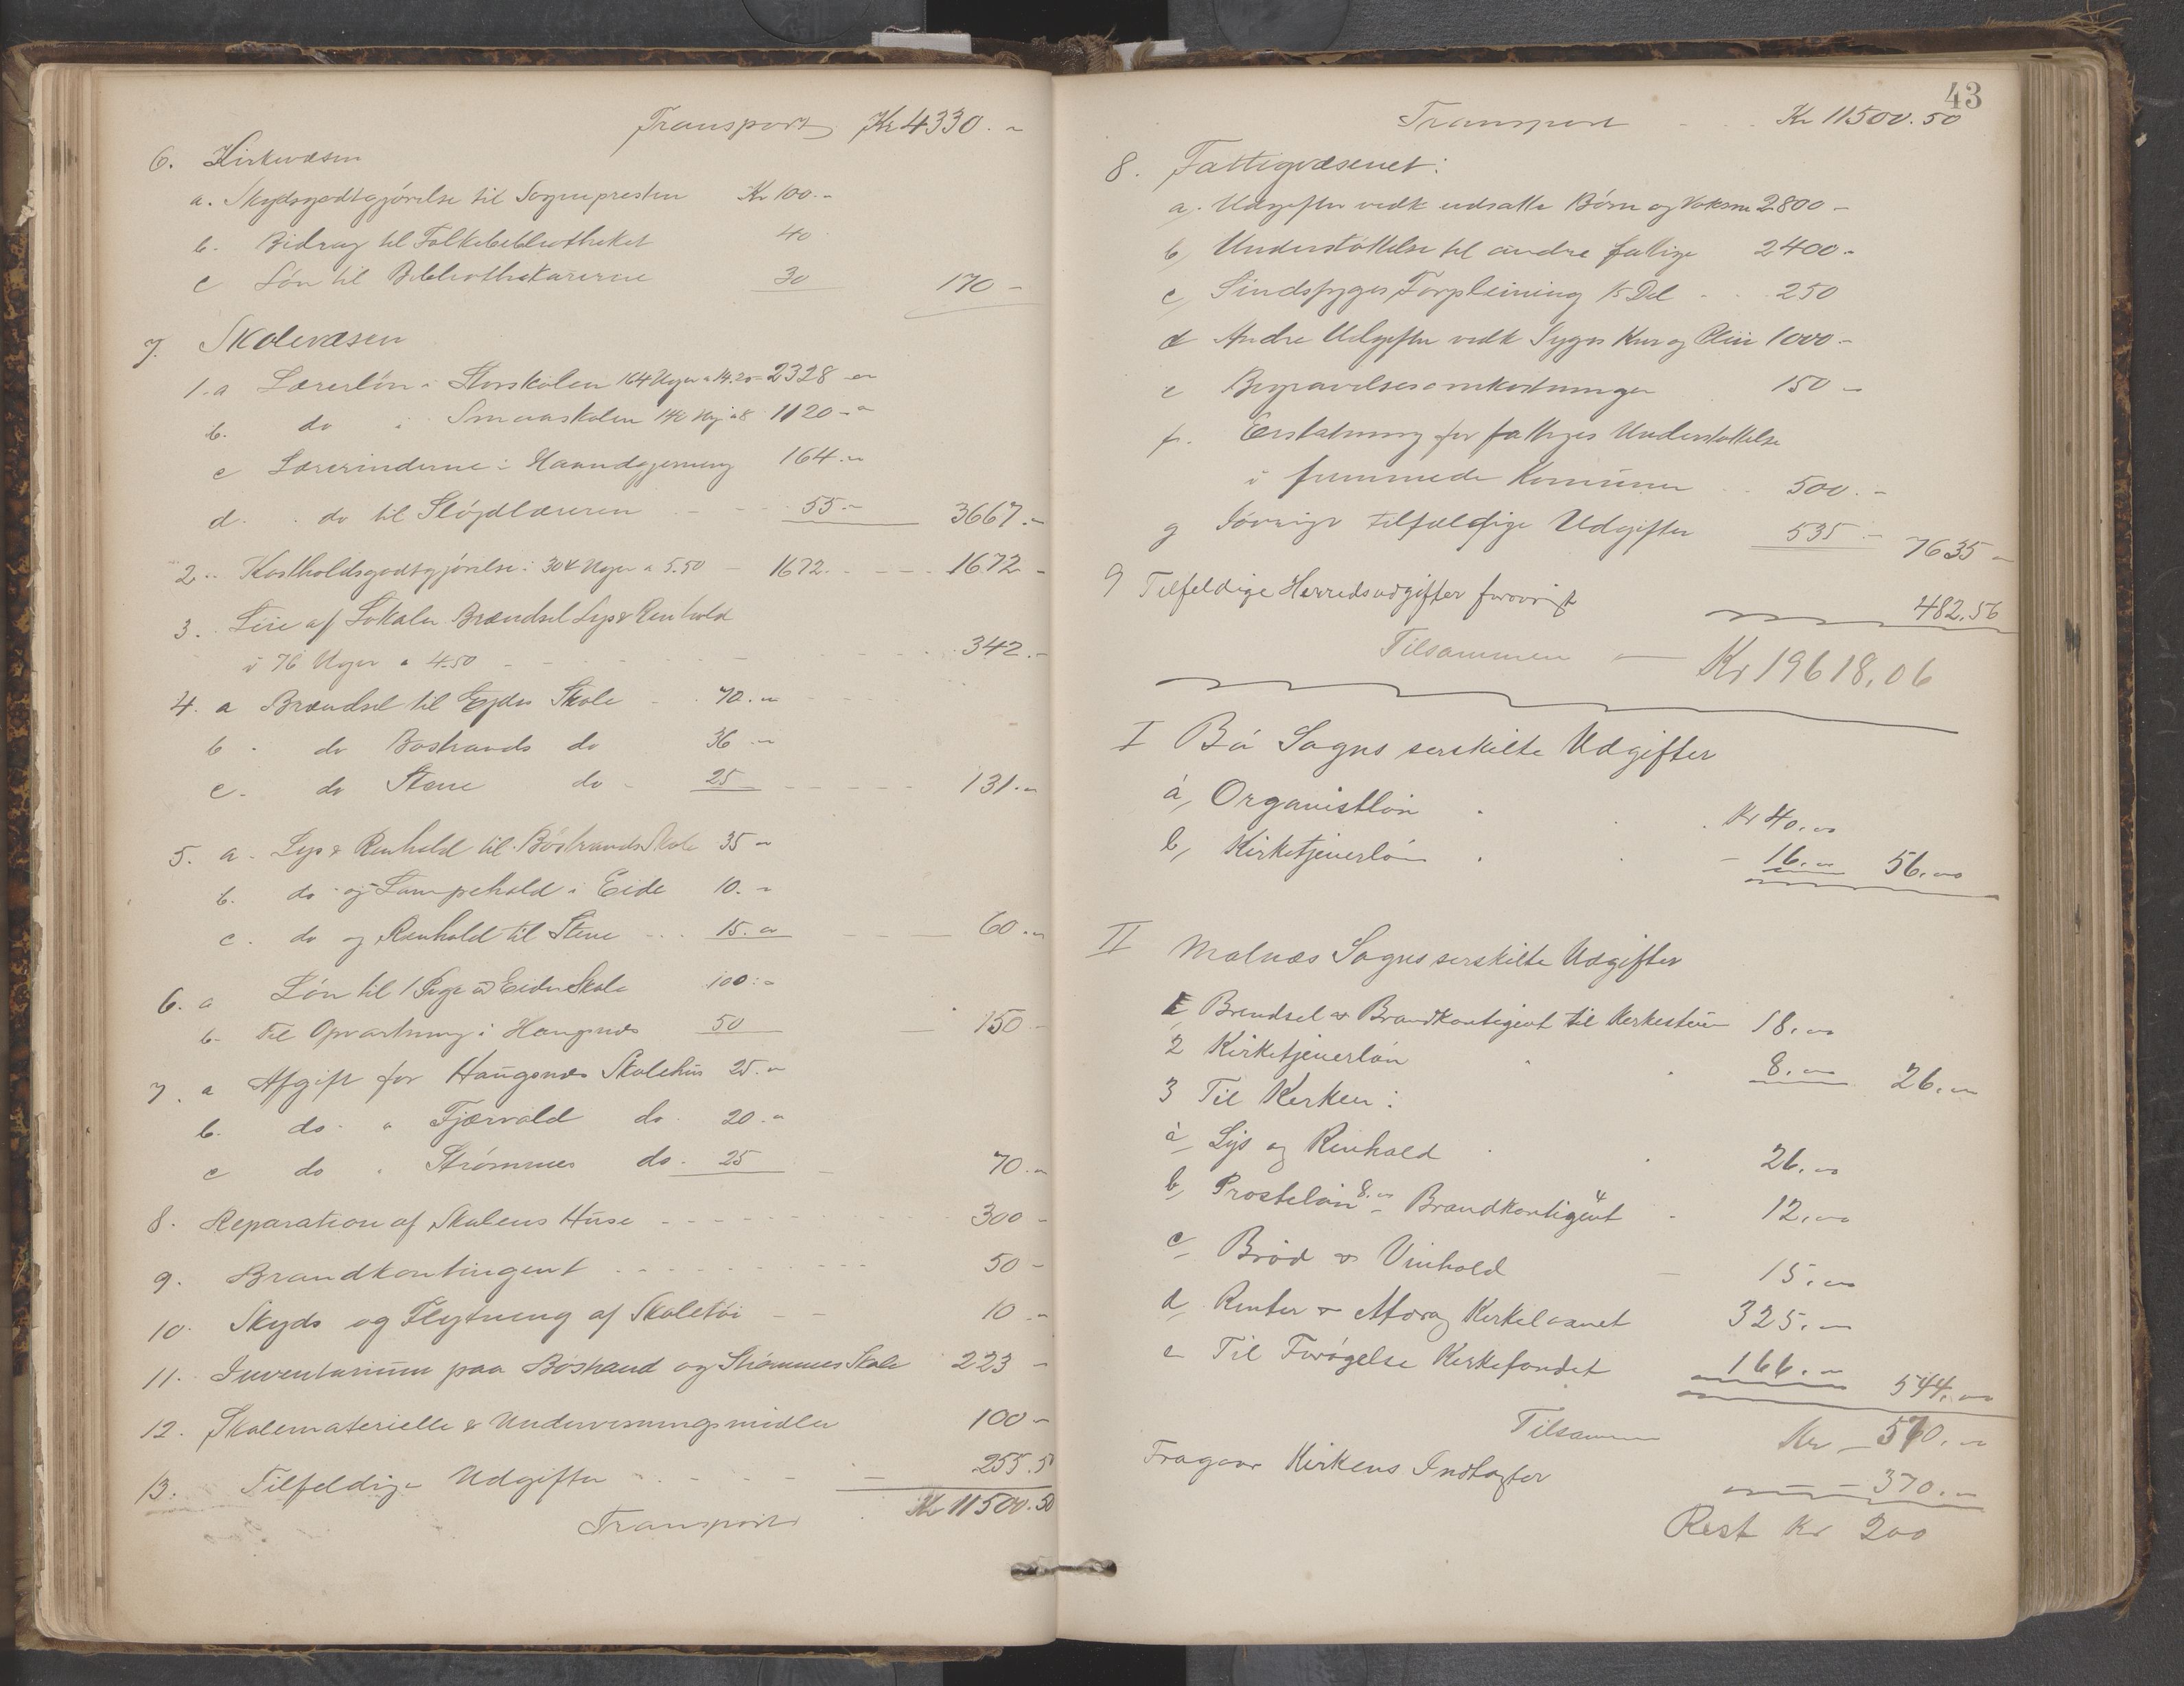 Transport Kr 4330. "
6. Kirkevæsen
a. Skydsgodtgjörelse til Sognepresten Kr 100.-
b. Bidrag til Folkebibliotheket 40
c Løn til Bibliothekarerne 30 170 -
7. Skolevæsen
1. a Lærerløn i Storskolen 164 Uger a 14.20 = 2328 -"
b. do i Smaaskolen 140 Ug a 8 1120 - "
c Lærerinderne i Haandgjerning 164. "
d. do til Slöjdlæreren 55 - 3667. -
2. Kostholdsgodtgjörelse i 304 Uger a 5.50 - 1672. - - - 1672 -
3. Leie af Lokaler Brændsel Lys & Renhold
i 76 Uger a 4.50 342. -
4. a Brændsel til Ejdes Skole 70. "
b - do Bostrands do 36 "
c. do Stene do 25 131. "
5. a. Lys & Renhold til Böstrands Skole 35 "
b. do og Lampehold i Eide 10. "
c. do og Renhold til Stene 15. " 60. "
6. a Lön til 1 Pige v Eide Skole 100. -
b- Til Opvartning i Haugsnes 50 150 -
7. a Afgift for Haugsnes Skolehus 25. "
b. do " Fjærvold do 20. "
c do " Strømmes do. 25 70. "
8. Reparation af Skolens Huse 300 -
9. Brandkontingent 50 -
10. Skyds og Flytning af Skoletöi 10 -
11. Inventarium paa Böstrand og Strömmes Skole 223 -
12. Skolemateriell & Undervisningsmidler 100 -
13. Tilfeldige Udgifter 255.5
Transport Kr 11500.50
43
Transport Kr 11500.50
8. Fattigvæsenet:
a. Udgifter vedk udsatte Börn og Voksne 2800 -
b, Understöttelse til andre fattige 2400. -
c, Sindsyges Forpleining 1/5 Del 250
d Andre Udgifter vedk Syges Kur og Pleie 1000. -
e Begravelsesomkostninger 150 -
f. Erstatning for fattiges Understöttelse
i fremmede Komuner 500. -
g Iövrigt tilfældige Udgifter 535 - 7635 "
9 Tilfeldige Herredsudgifter forövrigt 482,56
Tilsammen — Kr 19618,06
I Bö Sogns serskilte Udgifter
a, Organistlön Kr 40. "
b, Kirketjenerlön - 16. " 56. "
II Malnes Sogns serskilte Udgifter
1 Brendsel & Brandkontigent til Kerkestuen 18. "
2 Kirketjenerlön 8. " 26. "
3 Til Kerken:
a, Lys og Renhold 26. "
b, Prostelön 8. " - Brandkontigent 4 12. "
c Bröd & Vinhold 15. "
d, Renter & Afdrag Kerkelaanet 325. "
e Til Forögelse Kerkefondet 166. " 544. "
Tilsammen Kr - 570. "
Fragaar Kirkens Indtægter - - 370. "
Rest Kr 200